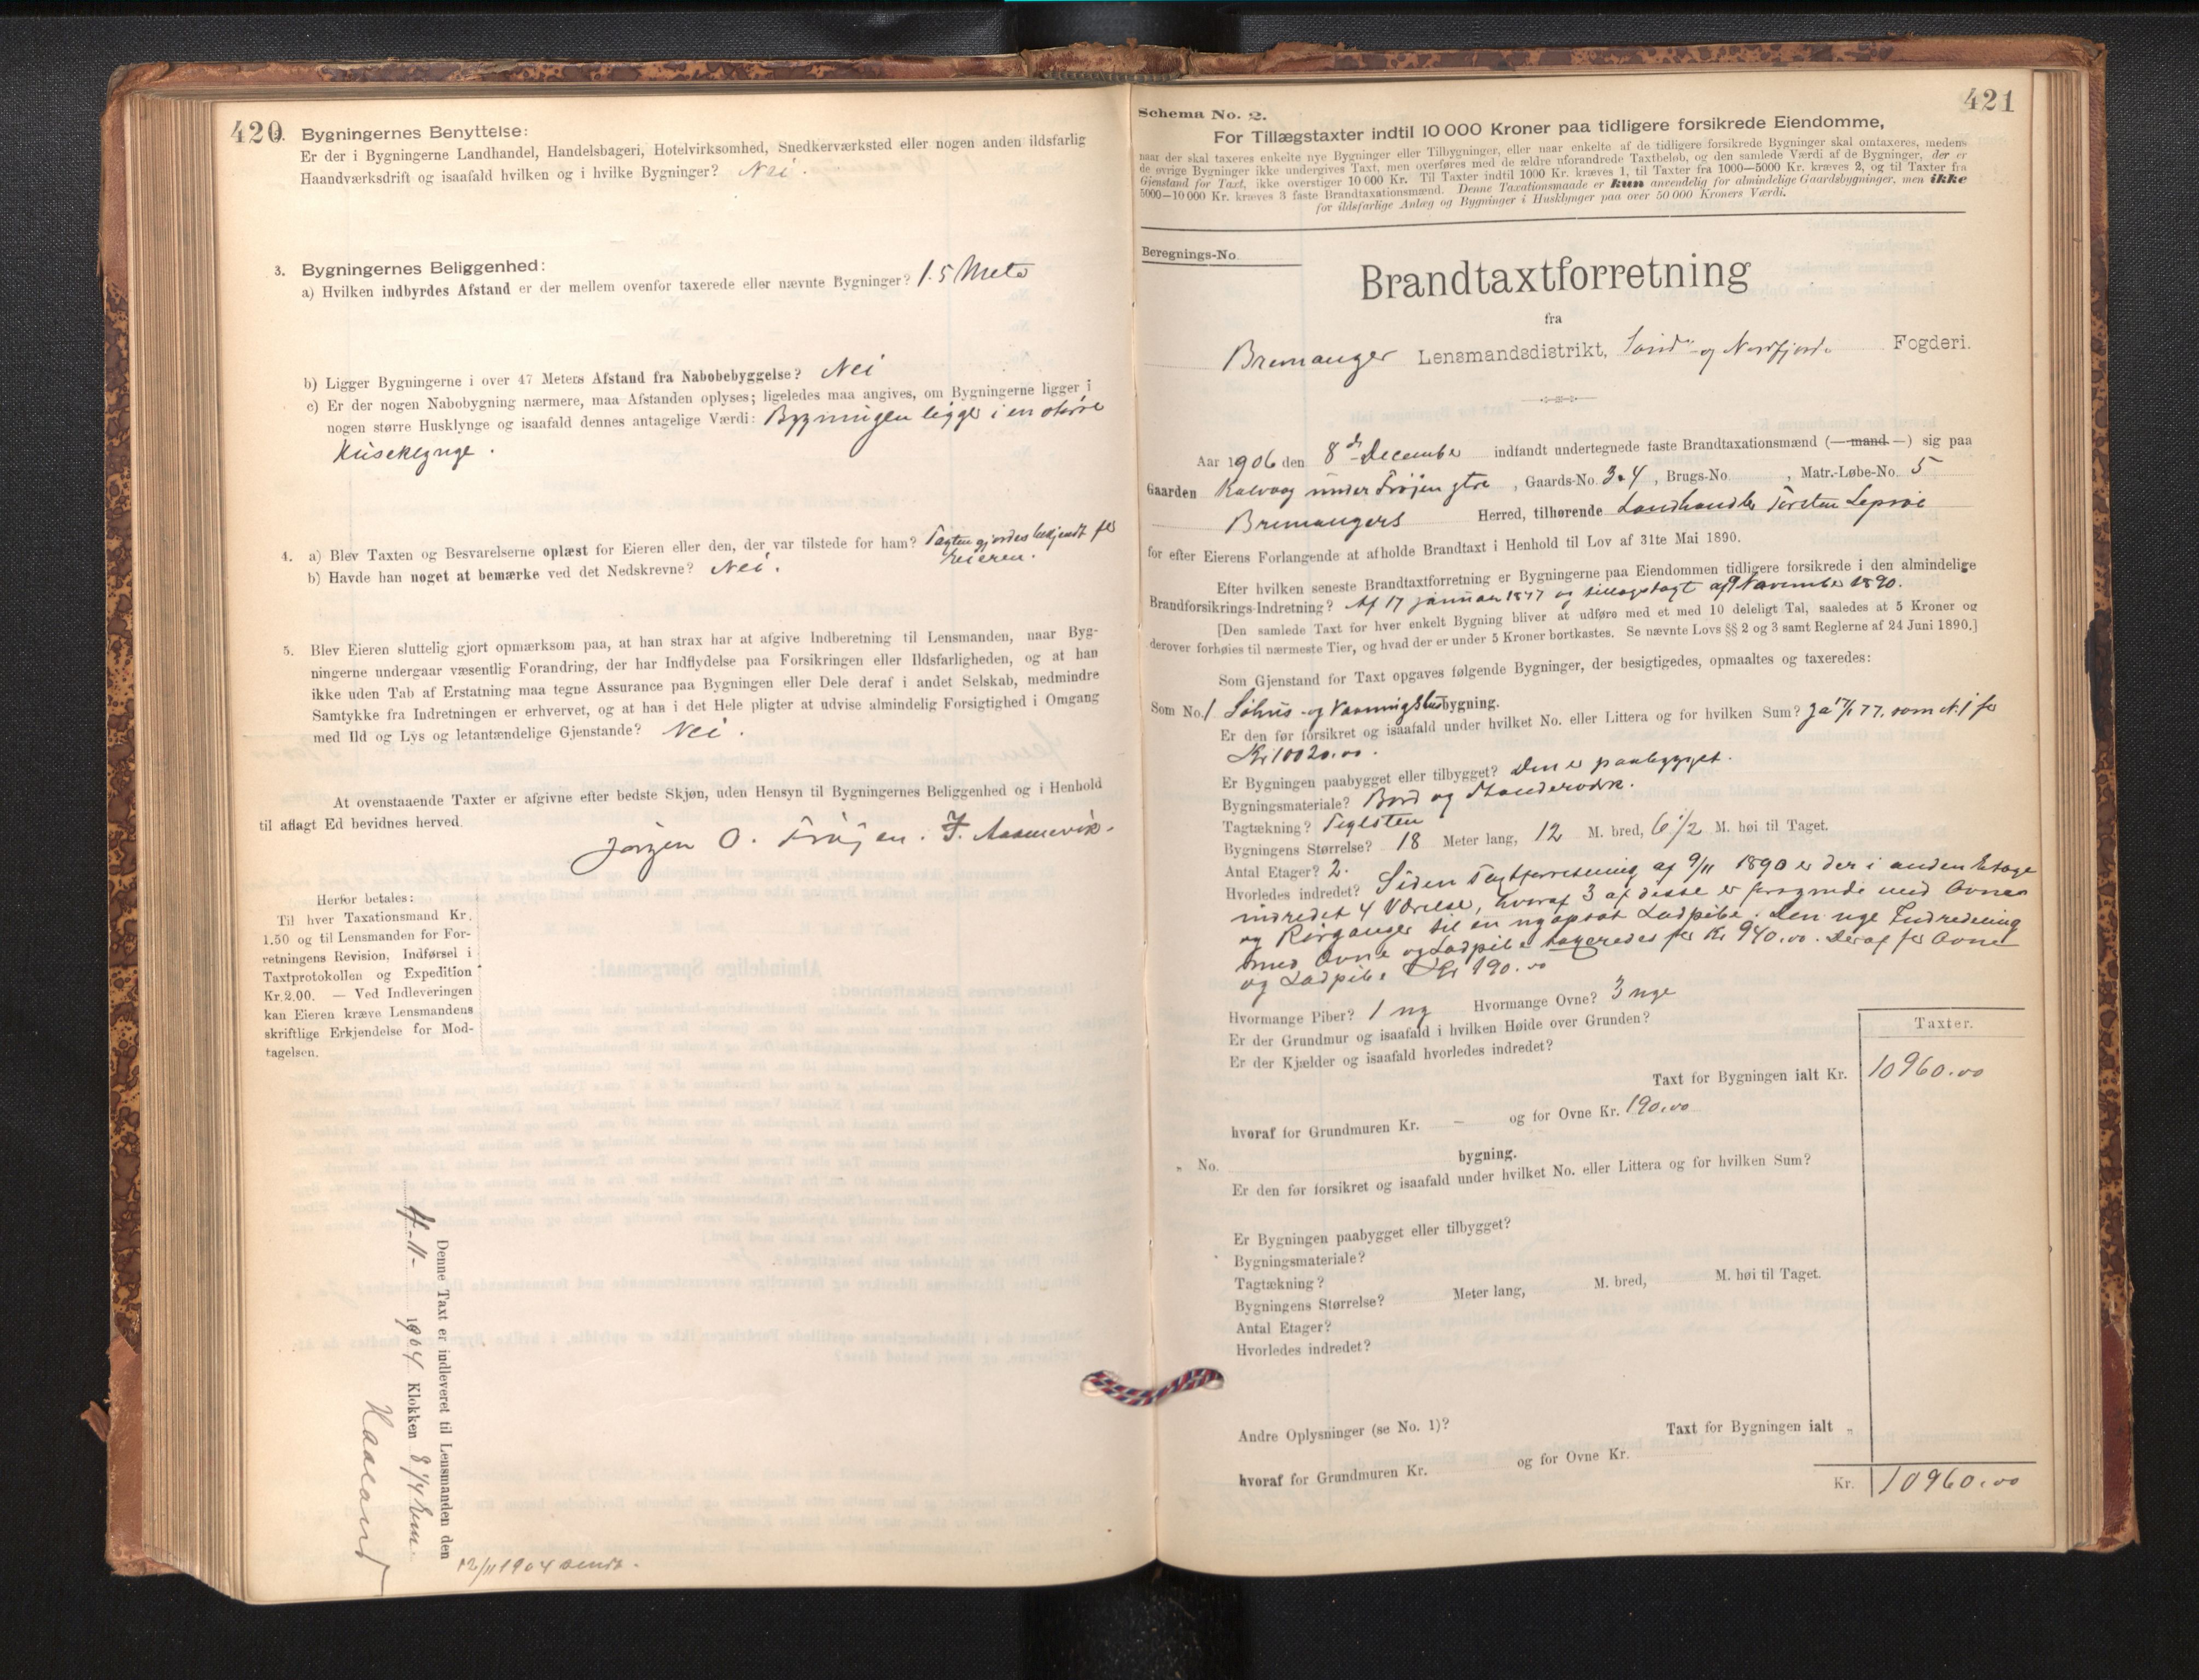 420
2. Bygningernes Benyttelse:
Er der i Bygningerne Landhandel, Handelsbageri, Hotelvirksomhed, Snedkerværksted eller nogen anden ildsfarlig
Haandværksdrift og isaafald hvilken og i hvilke Bygninger? Nei.
3. Bygningernes Beliggenhed:
a) Hvilken indbyrdes Afstand er der mellem ovenfor taxerede eller nævnte Bygninger? 1.5 Meto
b) Ligger Bygningerne i over 47 Meters Afstand fra Nabobebyggelse? Nei
c) Er der nogen Nabobygning nærmere, maa Afstanden oplyses; ligeledes maa angives, om Bygningerne ligger i
nogen større Husklynge og isaafald dennes antagelige Værdi: Bygningen ligger i en større
Huseklynge.
4. a) Blev Taxten og Besvarelserne oplæst for Eieren eller den, der var tilstede for ham? Taxten gjordes bekjendt for
Eieren.
b) Havde han noget at bemærke ved det Nedskrevne? Nei.
5. Blev Eieren sluttelig gjort opmærksom paa, at han strax har at afgive Indberetning til Lensmanden, naar Byg-
ningerne undergaar væsentlig Forandring, der har Indflydelse paa Forsikringen eller Ildsfarligheden, og at han
ikke uden Tab af Erstatning maa tegne Assurance paa Bygningen eller Dele deraf i andet Selskab, medmindre
Samtykke fra Indretningen er erhvervet, og at han i det Hele pligter at udvise almindelig Forsigtighed i Omgang
med Ild og Lys og letantændelige Gjenstande? Nei.
At ovenstaaende Taxter er afgivne efter bedste Skjøn, uden Hensyn til Bygningernes Beliggenhed og i Henhold
til aflagt Ed bevidnes herved.
Jørgen O. Frøjen. J. Aasmevik.
Herfor betales:
Til hver Taxationsmand Kr.
1.50 og til Lensmanden for For-
retningens Revision, Indførsel i
Taxtprotokollen og Expedition
Kr. 2.00. — Ved Indleveringen
kan Eieren kræve Lensmandens
skriftlige Erkjendelse for Mod-
tagelsen.
Denne Taxt er indleveret til Lensmanden den
4-11- 1904 Klokken 8 1/4 Em.
Haaland
12/11 1904 sendt.
421
Schema No. 2.
For Tillægstaxter indtil 10 000 Kroner paa tidligere forsikrede Eiendomme,
naar der skal taxeres enkelte nye Bygninger eller Tilbygninger, eller naar enkelte af de tidligere forsikrede Bygninger skal omtaxeres, medens
de øvrige Bygninger ikke undergives Taxt, men overføres med de ældre uforandrede Taxtbeløb, og den samlede Værdi af de Bygninger, der er
Gjenstand for Taxt, ikke overstiger 10 000 Kr. Til Taxter indtil 1000 Kr. kræves 1, til Taxter fra 1000—5000 Kr. kræves 2, og til Taxter fra
5000—10 000 Kr. kræves 3 faste Brandtaxationsmænd. Denne Taxationsmaade er kun anvendelig for almindelige Gaardsbygninger, men ikke
for ildsfarlige Anlæg og Bygninger i Husklynger paa over 50 000 Kroners Værdi.
Beregnings-No.
Brandtaxtforretning
fra
Bremanger Lensmandsdistrikt, Sønd- og Nordfjords Fogderi.
Aar 1906 den 8de December indfandt undertegnede faste Brandtaxationsmænd (—mand—) sig paa
Gaarden Kalvaag under Frøjen ytre, Gaards-No. 3.4, Brugs-No. , Matr.-Løbe-No. 5
Bremangers Herred, tilhørende Landhandler Torsten Lepsøe
for efter Eierens Forlangende at afholde Brandtaxt i Henhold til Lov af 31te Mai 1890.
Efter hvilken seneste Brandtaxtforretning er Bygningerne paa Eiendommen tidligere forsikrede i den almindelige
Brandforsikrings-Indretning? Af 17 januar 1877 og tillægstaxt af 9 November 1890.
[Den samlede Taxt for hver enkelt Bygning bliver at udføre med et med 10 deleligt Tal, saaledes at 5 Kroner og
derover forhøies til nærmeste Tier, og hvad der er under 5 Kroner bortkastes. Se nævnte Lovs §§ 2 og 3 samt Reglerne af 24 Juni 1890.]
Som Gjenstand for Taxt opgaves følgende Bygninger, der besigtigedes, opmaaltes og taxeredes:
Som No. 1 Søhus- og Vaaningshusbygning.
Er den før forsikret og isaafald under hvilket No. eller Littera og for hvilken Sum? Ja 17/1 77. som N.1 for
Kr 10020.00.
Er Bygningen paabygget eller tilbygget? Den er paabygget.
Bygningsmateriale? Bord og Standerværk.
Tagtækning? Teglsten
Bygningens Størrelse? 18 Meter lang, 12 M. bred, 6 1/2 M. høi til Taget.
Antal Etager? 2.
Hvorledes indredet? Siden Taxtforretning af 9/11 1890 er der i anden Etage
indredet 4 Værelser, hvoraf 3 af disse er forsynede med Ovne
og Rørganger til en ny opsat Ladpibe. Den nye Indredning
med Ovne og Ladpibe taxeredes for Kr 940.00. Deraf for Ovne
og Ladpibe Kr 190.00
Hvormange Piber? 1 ny Hvormange Ovne? 3 nye
Er der Grundmur og isaafald i hvilken Høide over Grunden?
Er der Kjælder og isaafald hvorledes indredet?
Taxter.
Taxt for Bygningen ialt Kr. 10960.00
hvoraf for Grundmuren Kr. – og for Ovne Kr. 190.00
„ No. bygning.
Er den før forsikret og isaafald under hvilket No. eller Littera og for hvilken Sum?
Er Bygningen paabygget eller tilbygget?
Bygningsmateriale?
Tagtækning?
Bygningens Størrelse? Meter lang, M. bred, M. høi til Taget.
Antal Etager?
Hvorledes indredet?
Andre Oplysninger (se No. 1)? Taxt for Bygningen ialt „
hvoraf for Grundmuren Kr. og for Ovne Kr.
Kr. 10960.00